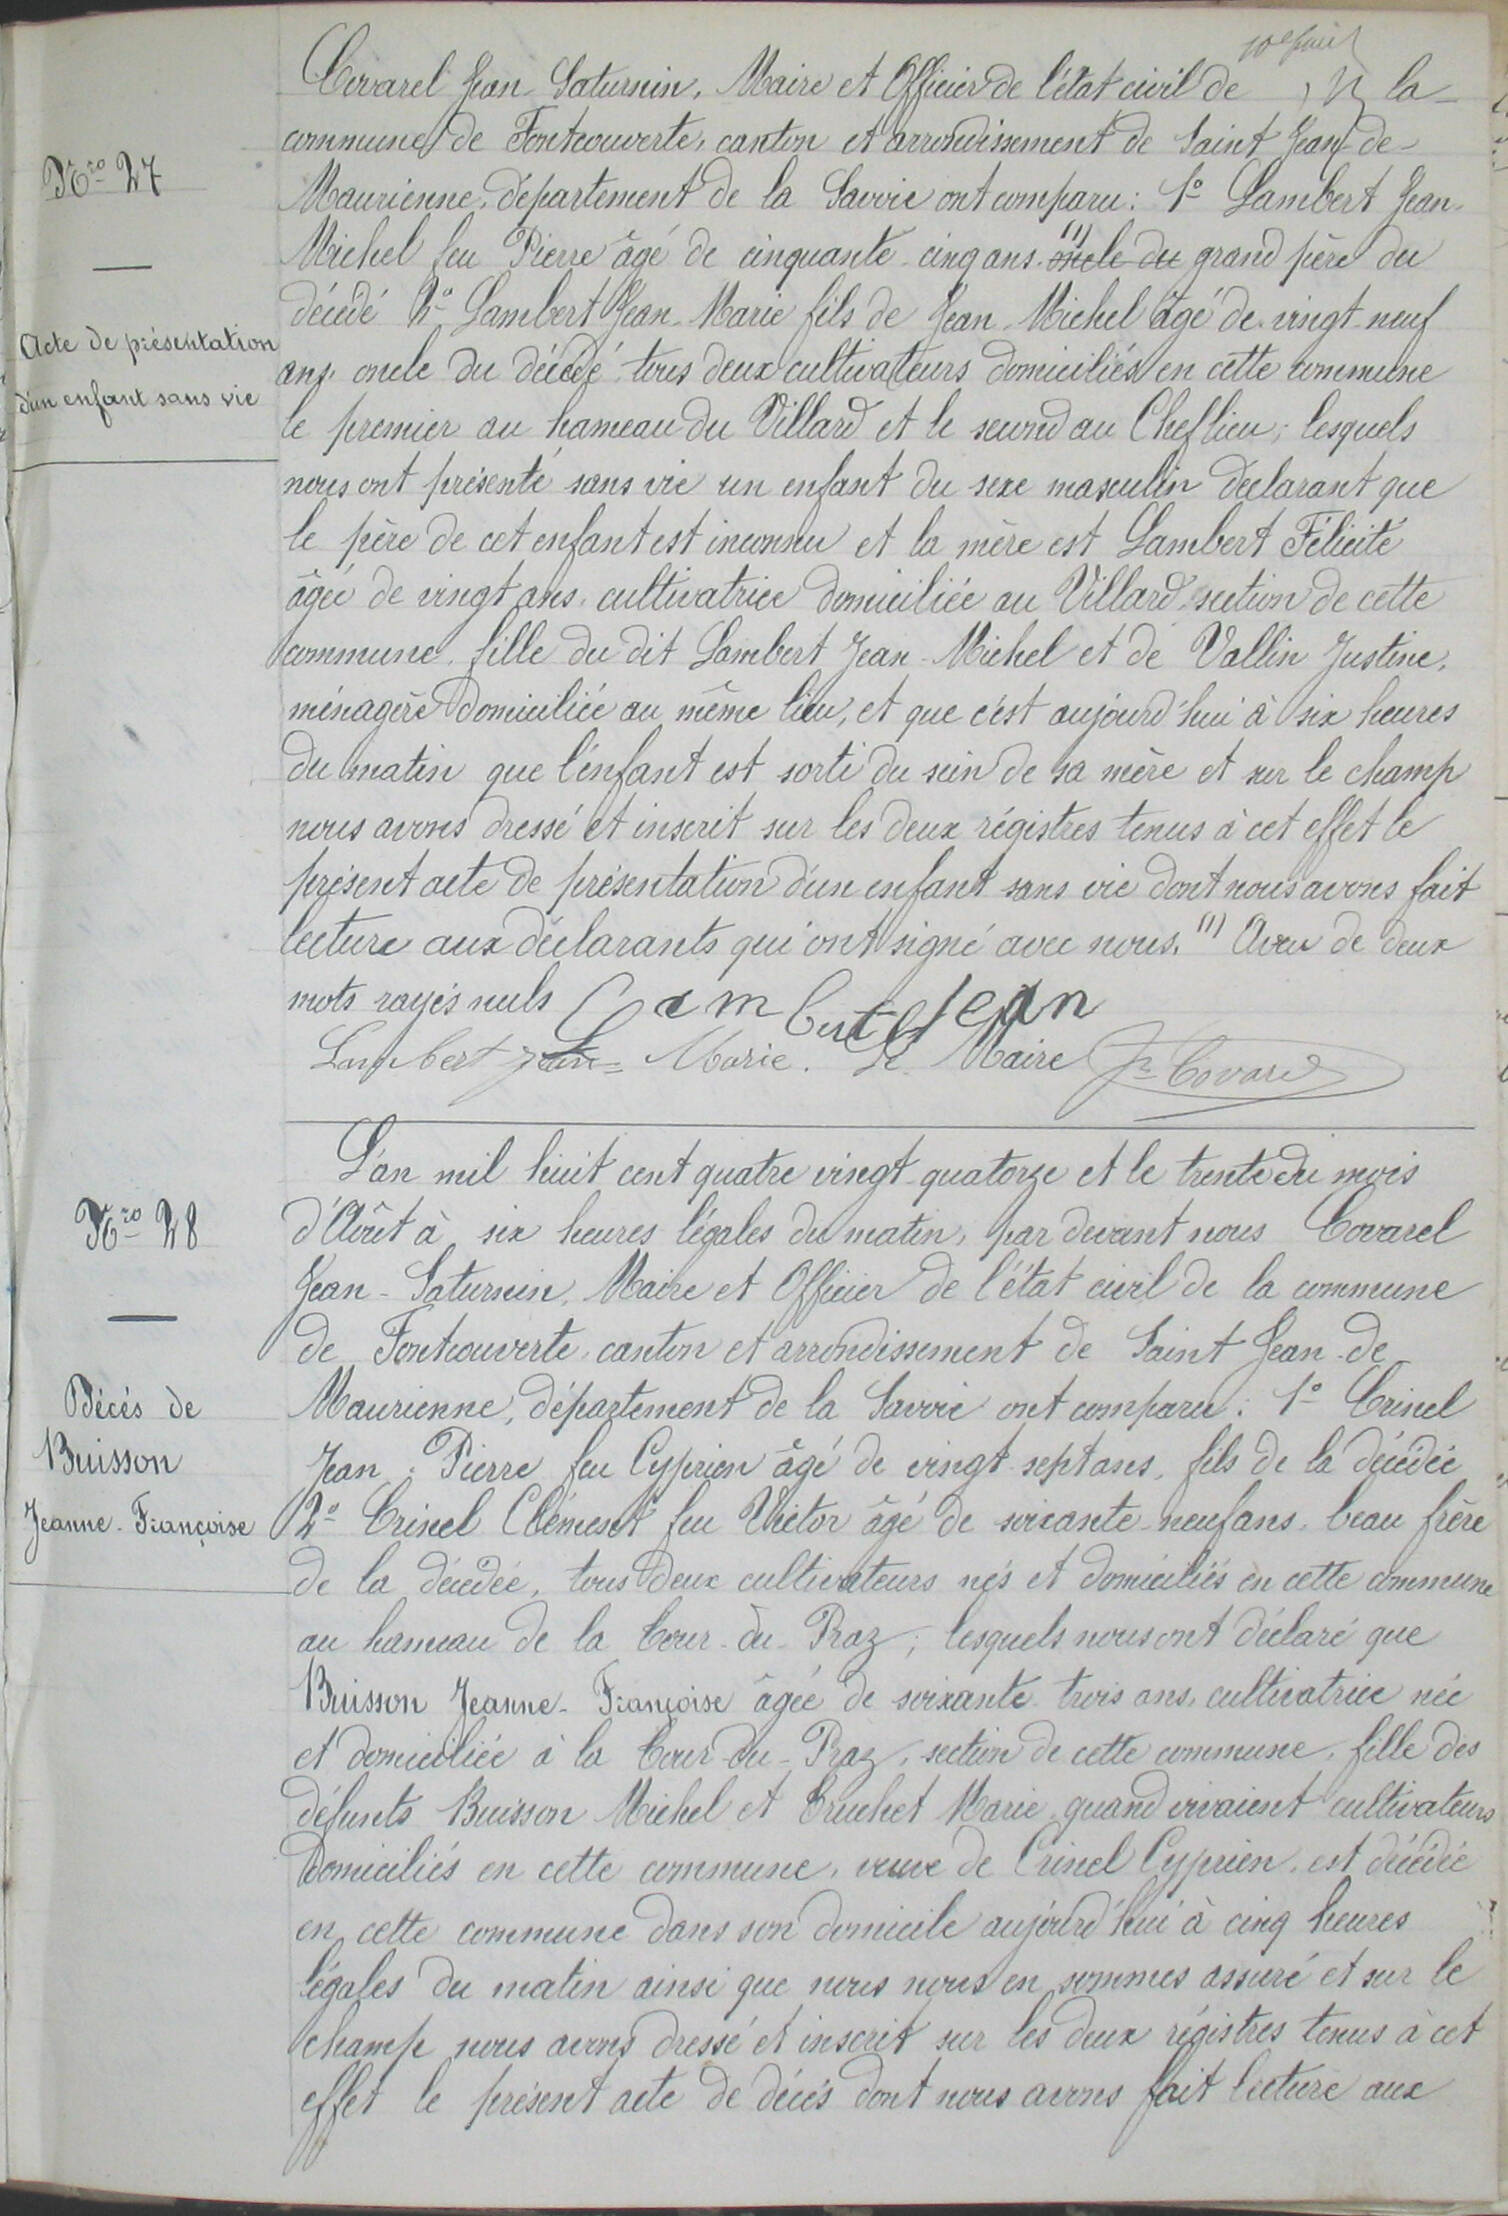 Covarel Jean Saturnin, Maire et Officier de l'état civil de la
commune de Fontcouverte, canton et arrondissement de Saint Jean de
Nro 27
Maurienne, département de la Savoie ont comparu: 1o Lambert Jean
Michel feu Pierre âgé de cinquante cinq ans (1) oncle du grand père du
décédé 2o Lambert Jean Marie fils de Jean Michel âgé de vingt neuf
Acte de présentation
d'un enfant sans vie
ans, oncle du décédé tous deux cultivateurs domiciliés en cette commune
le premier au hameau du Villard et le second au Cheflieu; lesquels
nous ont présenté sans vie un enfant du sexe masculin déclarant que
le père de cet enfant est inconnu et la mère est Lambert Félicité
âgée de vingt ans, cultivatrice domiciliée au Villard, section de cette
commune, fille du dit Lambert Jean Michel et de Vallin Justine,
ménagère domiciliée au même lieu, et que c'est aujourd'hui à six heures
du matin que l'enfant est sorti du sein de sa mère et sur le champ
nous avons dressé et inscrit sur les deux régistres tenus à cet effet le
présent acte de présentation d'un enfant sans vie dont nous avons fait
lecture aux déclarants qui ont signé avec nous. (1) Aveu de deux
mots rayés nuls Lambert Jean
Lambert Jean Marie. Le Maire Jn Covarel
L'an mil huit cent quatre vingt quatorze et le trente du mois
Nro 28
d'Aôut à six heures légales du matin, par devant nous Covarel
Jean-Saturnin, Maire et Officier de l'état civil de la commune
de Fontcouverte, canton et arrondissement de Saint Jean de
Décés de
Buisson
Jeanne-Françoise
Maurienne, département de la Savoie ont comparu: 1o Crinel
Jean Pierre feu Cyprien âgé de vingt sept ans, fils de la décédée
2o Crinel Clément feu Victor âgé de soixante-neuf ans, beau frère
de la décédée, tous deux cultivateurs nés et domiciliés en cette commune
au hameau de la Cour-du-Praz; lesquels nous ont déclaré que
Buisson Jeanne-Françoise âgée de soixante trois ans, cultivatrice née
et domiciliée à la Cour-du-Praz, section de cette commune, fille des
défunts Buisson Michel et Truchet Marie quand vivaient cultivateurs
domiciliés en cette commune, veuve de Crinel Cyprien, est décédée
en cette commune dans son domicile aujourd'hui à cinq heures
légales du matin ainsi que nous nous en sommes assuré et sur le
champ nous avons dressé et inscrit sur les deux régistres tenus à cet
effet le présent acte de décès dont nous avons fait lecture aux